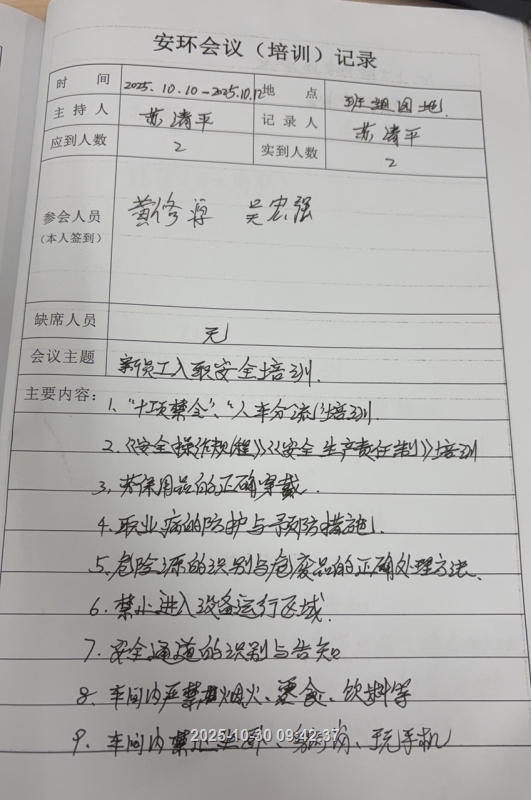 安环会议（培训）记录
时 间 2025.10.10-2025.10.12 地 点 班组园地
主 持 人 苏清平 记 录 人 苏清平
应到人数 2 实到人数 2
参会人员 黄修 吴宏强
（本人签到）
缺席人员 无
会议主题 新员工入职安全培训.
主要内容：1、“十项禁令”、“人车分流”培训.
2.《安全操作规程》《安全生产责任制》培训
3, 劳保用品的正确穿戴.
4. 职业病的防护与预防措施.
5. 危险源的识别与危废品的正确处理方法.
6. 禁止进入设备运行区域.
7. 安全通道的识别与告知
8. 车间内严禁烟火、食、饮料等
9. 车间内禁止、玩手机
2025-10-30 09:42:37